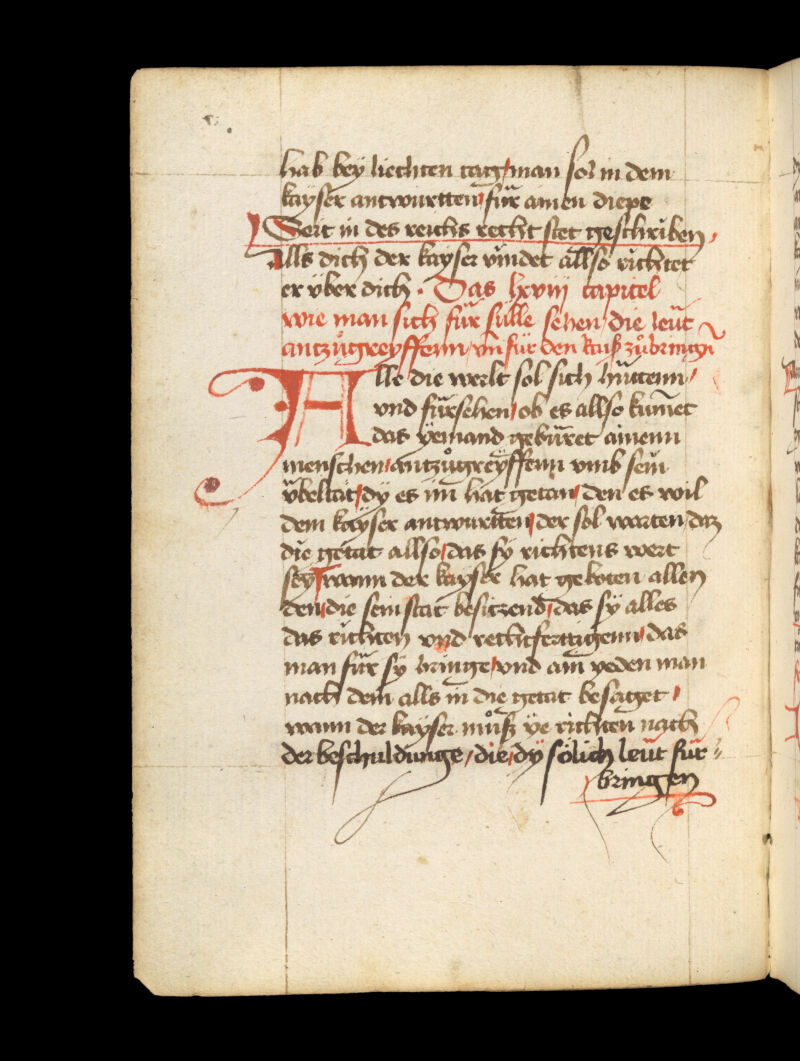 hab bey liechten tag / man sol in dem
kayser antwurtten / für ainen diepe
Seit in des reichs recht stet geschriben /
Alls dich der kayser vindet allso richtet
er über dich . Das lxviij capitel
wie man sich für sülle sehen / die leüt
antzůgreyffenn / vn̄ für den zůbringen̄
Alle die werlt sol sich hüttenn /
vnd fürsehen / ob es allso kum̄et
das yemand gebüret ainenn
menschen / antzůgreyffenn vmb sein
übeltät / dy er im hat getan / den er wil
dem kayser antwurtten / der sol warten / daz
die getat allso / das sy richtens wert
sey / wann der kayser hat geboten allen
den / die sein stat besitzend / das sy alles
das richten vnd rechtferttigenn / das
man für sy bringe / vnd aim yeden man
nach dem alls in die getat besaget /
wann der kayser můſz ye richten nach
der beschuldunge / die / dy sölich leüt für-
bringen